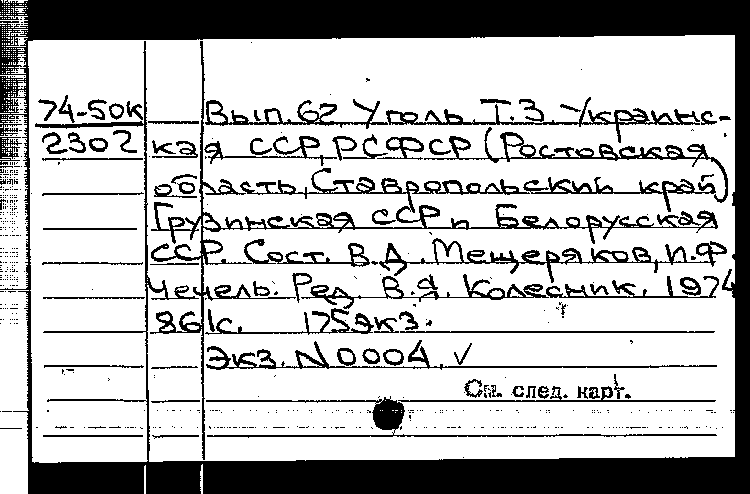 74-50к Вып. 62. Уголь. Т. 3. Украинс-
2302 кая ССР, РСФСР (Ростовская
область, Ставропольский край),
Грузинская ССР и Белорусская
ССР. Сост. В.Д. Мещеряков, И.Ф.
Чечель. Ред. В.Я. Колесник. 1974
861с. 175экз.
Экз. N0004. ✓
См. след. карт.